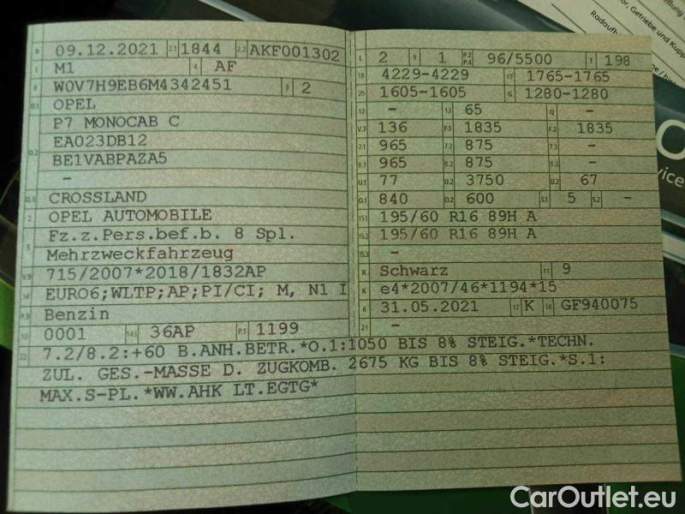 09.12.2021 1844 AKF001302
M1 AF
W0V7H9EB6M4342451 2
OPEL
P7 MONOCAB C
EA023DB12
BE1VABPAZA5
-
CROSSLAND
OPEL AUTOMOBILE
Fz.z.Pers.bef.b. 8 Spl.
Mehrzweckfahrzeug
715/2007*2018/1832AP
EURO6;WLTP;AP;PI/CI; M, N1 I
Benzin
0001 36AP 1199
2 1 96/5500 198
4229-4229 1765-1765
1605-1605 1280-1280
- 65 -
136 1835 1835
965 875 -
965 875 -
77 3750 67
840 600 5 -
195/60 R16 89H A
195/60 R16 89H A
-
Schwarz 9
e4*2007/46*1194*15
31.05.2021 K GF940075
-
7.2/8.2:+60 B.ANH.BETR.*O.1:1050 BIS 8% STEIG.*TECHN.
ZUL. GES.-MASSE D. ZUGKOMB. 2675 KG BIS 8% STEIG.*S.1:
MAX.S-PL.*WW.AHK LT.EGTG*
CarOutlet.eu